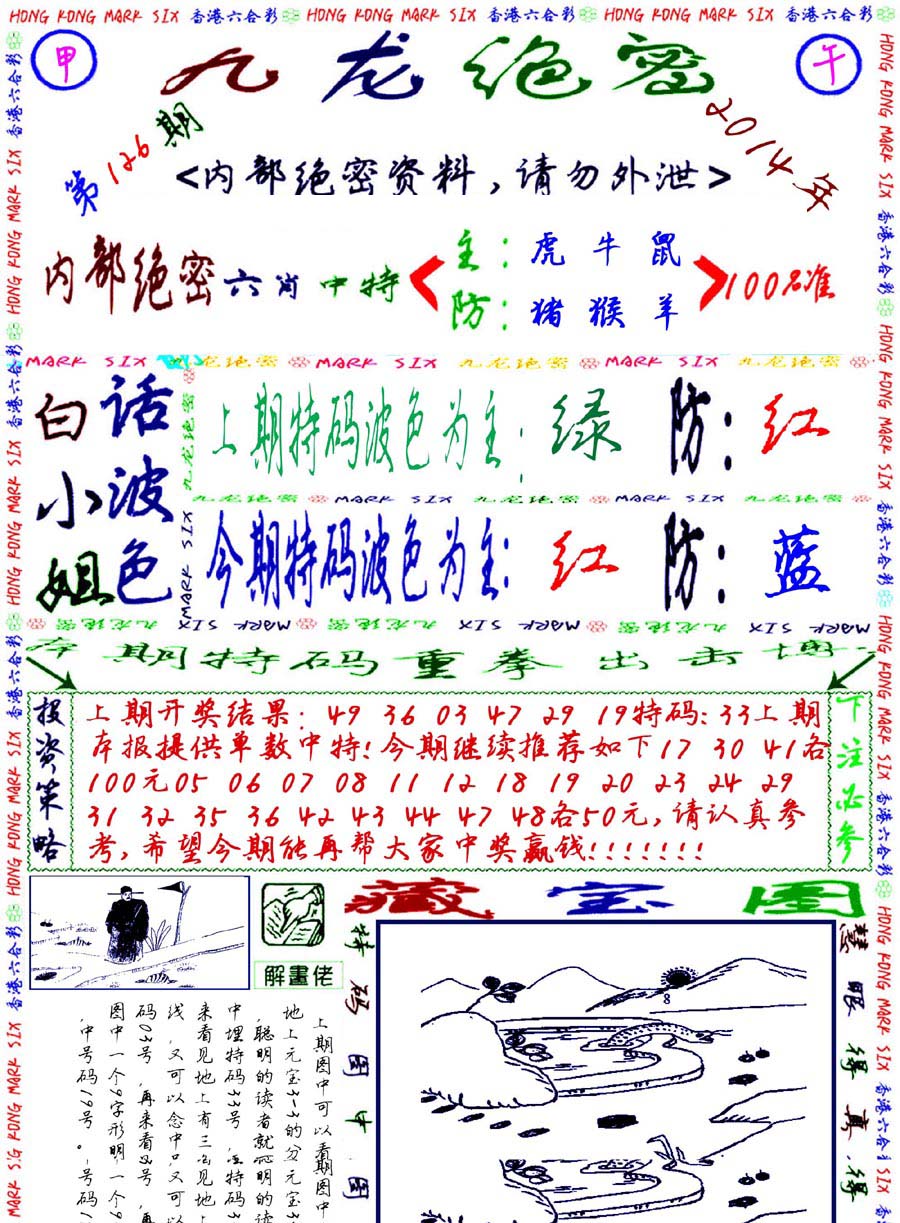 HONG KONG MARK SIX 香港六合彩 HONG KONG MARK SIX 香港六合彩 HONG KONG MARK SIX 香港六合彩
甲
九龙绝密
午
第126期
2014年
<内部绝密资料,请勿外泄>
内部绝密六肖中特
主:虎牛鼠
防:猪猴羊
100%准
MARK SIX 九龙绝密 MARK SIX 九龙绝密 MARK SIX 九龙绝密
白小姐
话波色
上期特码波色为主:绿 防:红
九龙绝密 MARK SIX 九龙绝密 MARK SIX 九龙绝密
今期特码波色为主:红 防:蓝
九龙绝密 MARK SIX 九龙绝密 MARK SIX 九龙绝密 MARK SIX
本期特码重拳出击博
投资策略
上期开奖结果:49 36 03 47 29 19特码:33上期
本报提供单数中特!今期继续推荐如下17 30 41各
100元05 06 07 08 11 12 18 19 20 23 24 29
31 32 35 36 42 43 44 47 48各50元,请认真参
考,希望今期能再帮大家中奖赢钱!!!!!!!
下注必参
藏宝图
解畫佬
特码图中图
慧眼得真得
上期图中可以看期图中
地上元宝3-3的分元宝3
,聪明的读者就
中埋特码33号
来看见地上有三
线,又可以念中
码03号,再来看
图中一个9字形明,一个9
,中号码19号。